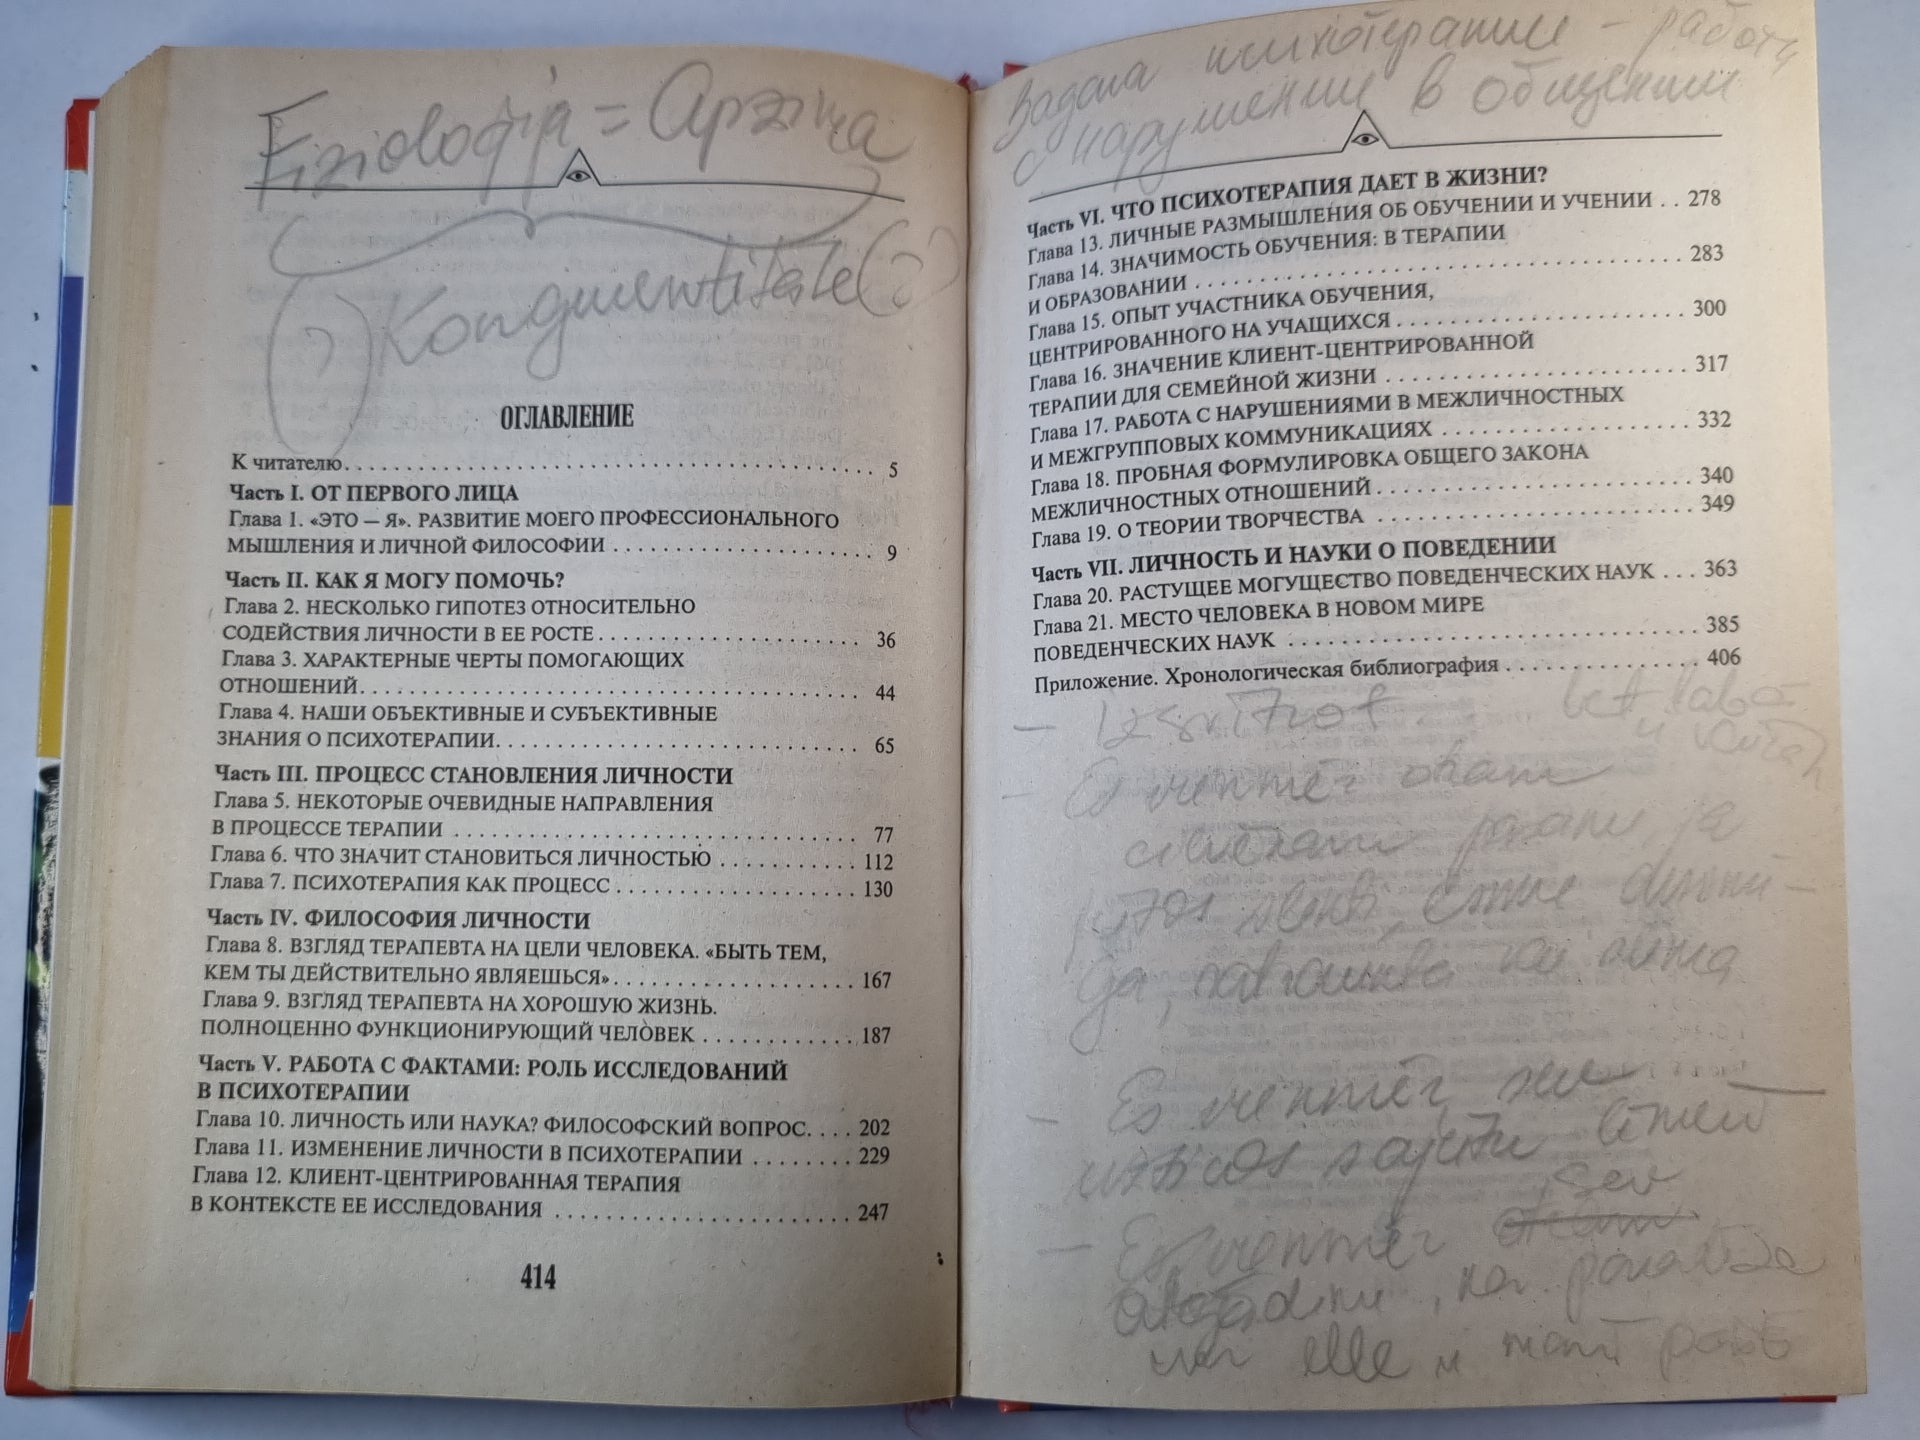 Fizioloģija = Apziņa
(?) Kongruentitāte (?)
ОГЛАВЛЕНИЕ
К читателю. . . . . . . . . . . . . . . . . . . . . . . . . . . . . . . . . . . . . . . . 5
Часть I. ОТ ПЕРВОГО ЛИЦА
Глава 1. «ЭТО — Я». РАЗВИТИЕ МОЕГО ПРОФЕССИОНАЛЬНОГО
МЫШЛЕНИЯ И ЛИЧНОЙ ФИЛОСОФИИ . . . . . . . . . . . . . . . . . . . . 9
Часть II. КАК Я МОГУ ПОМОЧЬ?
Глава 2. НЕСКОЛЬКО ГИПОТЕЗ ОТНОСИТЕЛЬНО
СОДЕЙСТВИЯ ЛИЧНОСТИ В ЕЕ РОСТЕ . . . . . . . . . . . . . . . . . . . . 36
Глава 3. ХАРАКТЕРНЫЕ ЧЕРТЫ ПОМОГАЮЩИХ
ОТНОШЕНИЙ. . . . . . . . . . . . . . . . . . . . . . . . . . . . . . . . . . . . . . 44
Глава 4. НАШИ ОБЪЕКТИВНЫЕ И СУБЪЕКТИВНЫЕ
ЗНАНИЯ О ПСИХОТЕРАПИИ. . . . . . . . . . . . . . . . . . . . . . . . . . . 65
Часть III. ПРОЦЕСС СТАНОВЛЕНИЯ ЛИЧНОСТИ
Глава 5. НЕКОТОРЫЕ ОЧЕВИДНЫЕ НАПРАВЛЕНИЯ
В ПРОЦЕССЕ ТЕРАПИИ . . . . . . . . . . . . . . . . . . . . . . . . . . . . . . 77
Глава 6. ЧТО ЗНАЧИТ СТАНОВИТЬСЯ ЛИЧНОСТЬЮ . . . . . . . . . . . 112
Глава 7. ПСИХОТЕРАПИЯ КАК ПРОЦЕСС . . . . . . . . . . . . . . . . . . . 130
Часть IV. ФИЛОСОФИЯ ЛИЧНОСТИ
Глава 8. ВЗГЛЯД ТЕРАПЕВТА НА ЦЕЛИ ЧЕЛОВЕКА. «БЫТЬ ТЕМ,
КЕМ ТЫ ДЕЙСТВИТЕЛЬНО ЯВЛЯЕШЬСЯ». . . . . . . . . . . . . . . . . . . 167
Глава 9. ВЗГЛЯД ТЕРАПЕВТА НА ХОРОШУЮ ЖИЗНЬ.
ПОЛНОЦЕННО ФУНКЦИОНИРУЮЩИЙ ЧЕЛОВЕК . . . . . . . . . . . . 187
Часть V. РАБОТА С ФАКТАМИ: РОЛЬ ИССЛЕДОВАНИЙ
В ПСИХОТЕРАПИИ
Глава 10. ЛИЧНОСТЬ ИЛИ НАУКА? ФИЛОСОФСКИЙ ВОПРОС. . . . 202
Глава 11. ИЗМЕНЕНИЕ ЛИЧНОСТИ В ПСИХОТЕРАПИИ . . . . . . . . 229
Глава 12. КЛИЕНТ-ЦЕНТРИРОВАННАЯ ТЕРАПИЯ
В КОНТЕКСТЕ ЕЕ ИССЛЕДОВАНИЯ . . . . . . . . . . . . . . . . . . . . . . . 247
414
Задача психотерапии – работа
с нарушении в общении
Часть VI. ЧТО ПСИХОТЕРАПИЯ ДАЕТ В ЖИЗНИ?
Глава 13. ЛИЧНЫЕ РАЗМЫШЛЕНИЯ ОБ ОБУЧЕНИИ И УЧЕНИИ . . 278
Глава 14. ЗНАЧИМОСТЬ ОБУЧЕНИЯ: В ТЕРАПИИ
И ОБРАЗОВАНИИ . . . . . . . . . . . . . . . . . . . . . . . . . . . . . . . . . . . 283
Глава 15. ОПЫТ УЧАСТНИКА ОБУЧЕНИЯ,
ЦЕНТРИРОВАННОГО НА УЧАЩИХСЯ . . . . . . . . . . . . . . . . . . . . . 300
Глава 16. ЗНАЧЕНИЕ КЛИЕНТ-ЦЕНТРИРОВАННОЙ
ТЕРАПИИ ДЛЯ СЕМЕЙНОЙ ЖИЗНИ . . . . . . . . . . . . . . . . . . . . . . 317
Глава 17. РАБОТА С НАРУШЕНИЯМИ В МЕЖЛИЧНОСТНЫХ
И МЕЖГРУППОВЫХ КОММУНИКАЦИЯХ . . . . . . . . . . . . . . . . . . . 332
Глава 18. ПРОБНАЯ ФОРМУЛИРОВКА ОБЩЕГО ЗАКОНА
МЕЖЛИЧНОСТНЫХ ОТНОШЕНИЙ . . . . . . . . . . . . . . . . . . . . . . . . 340
Глава 19. О ТЕОРИИ ТВОРЧЕСТВА . . . . . . . . . . . . . . . . . . . . . . . . 349
Часть VII. ЛИЧНОСТЬ И НАУКИ О ПОВЕДЕНИИ
Глава 20. РАСТУЩЕЕ МОГУЩЕСТВО ПОВЕДЕНЧЕСКИХ НАУК . . . 363
Глава 21. МЕСТО ЧЕЛОВЕКА В НОВОМ МИРЕ
ПОВЕДЕНЧЕСКИХ НАУК . . . . . . . . . . . . . . . . . . . . . . . . . . . . . . 385
Приложение. Хронологическая библиография . . . . . . . . . . . . . . 406
– Es vienmēr
– Es vienmēr
– Es vienmēr sev